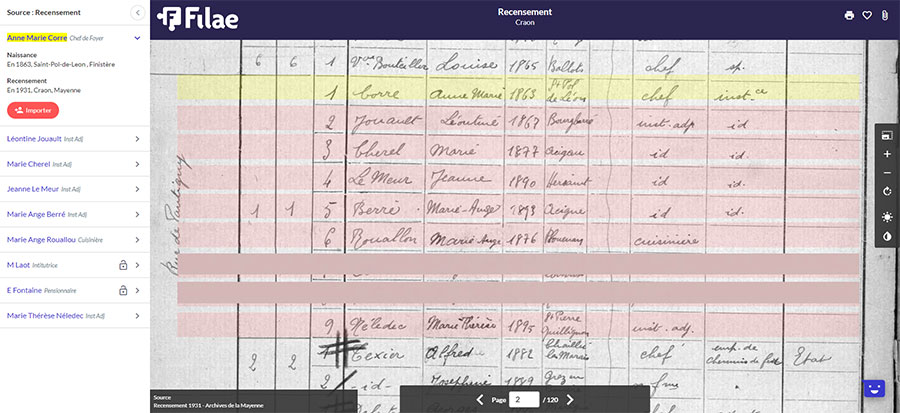 Source : Recensement
Anne Marie Corre Chef de Foyer
Naissance
En 1863, Saint-Pol-de-Leon , Finistère
Recensement
En 1931, Craon, Mayenne
Importer
Léontine Jouault Inst Adj
Marie Cherel Inst Adj
Jeanne Le Meur Inst Adj
Marie Ange Berré Inst Adj
Marie Ange Rouallou Cuisinière
M Laot Intitutrice
E Fontaine Pensionnaire
Marie Thérèse Néledec Inst Adj
Filae
Recensement
Craon
6 6 1 Vve Bouteiller Louise 1865 Ballots chef sp.
1 Corre Anne Marie 1863 St Pol de Léon chef inst.ce
2 Jouault Léontine 1867 inst. adj. id
3 Cherel Marie 1877 id id.
4 Le Meur Jeanne 1890 id id.
1 1 5 Berré Marie-Ange 1893 Acigné id id.
6 Rouallou Marie Ange 1876 cuisinière
9 Néledec Marie Thérèse 1895 St Pierre Quilbignon inst. adj.
2 2 1 Texier Alfred 1882 chef emp. de Chemins de fer Etat
2 - id - Josephine 1889 fme
Rue de
Source
Recensement 1931 - Archives de la Mayenne
Page 2 / 120